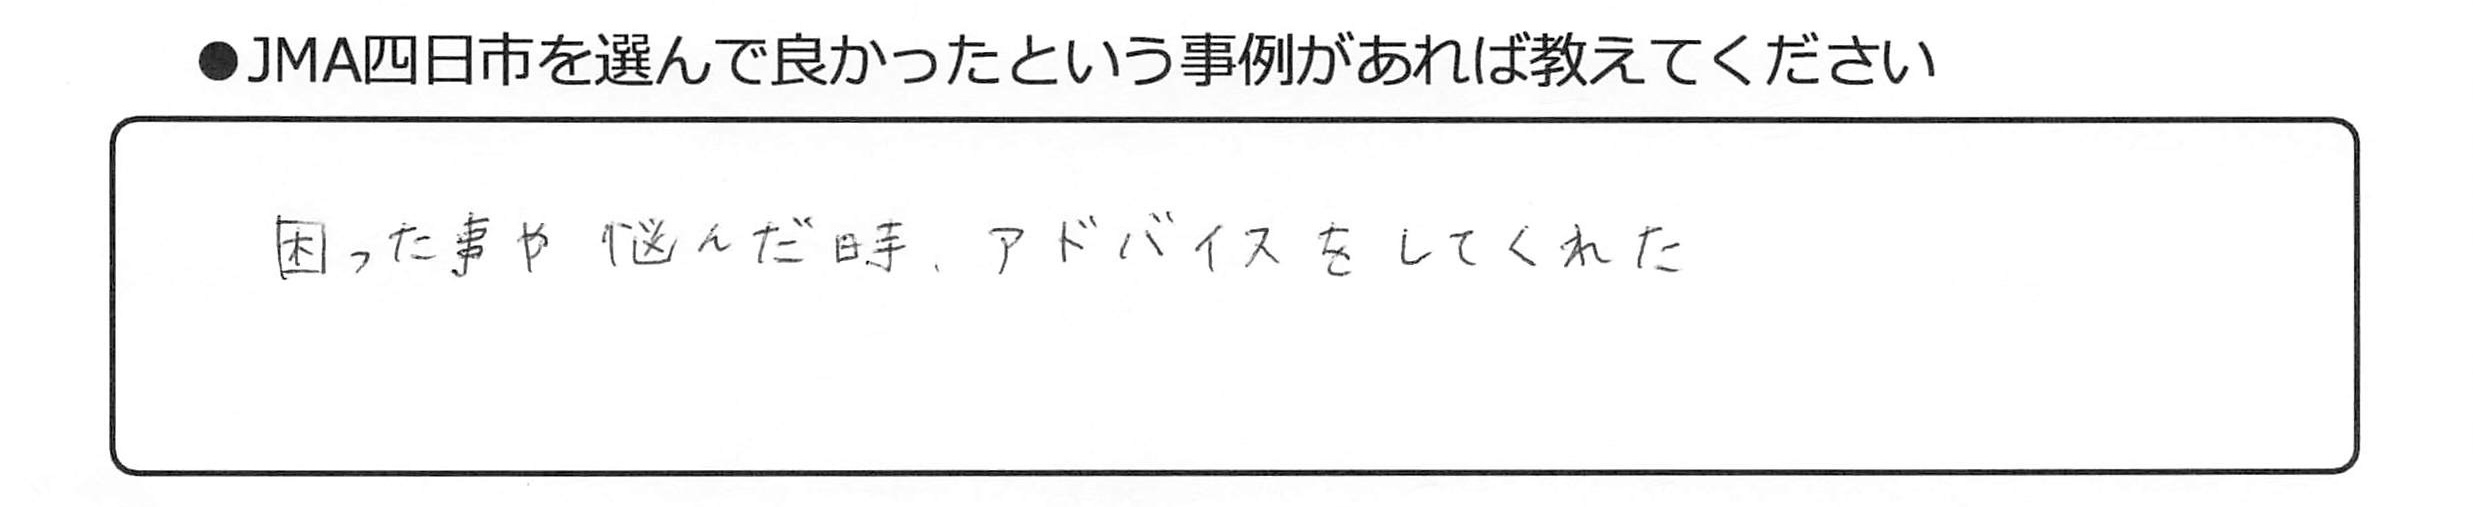 ●JMA四日市を選んで良かったという事例があれば教えてください
困った事や悩んだ時、アドバイスをしてくれた